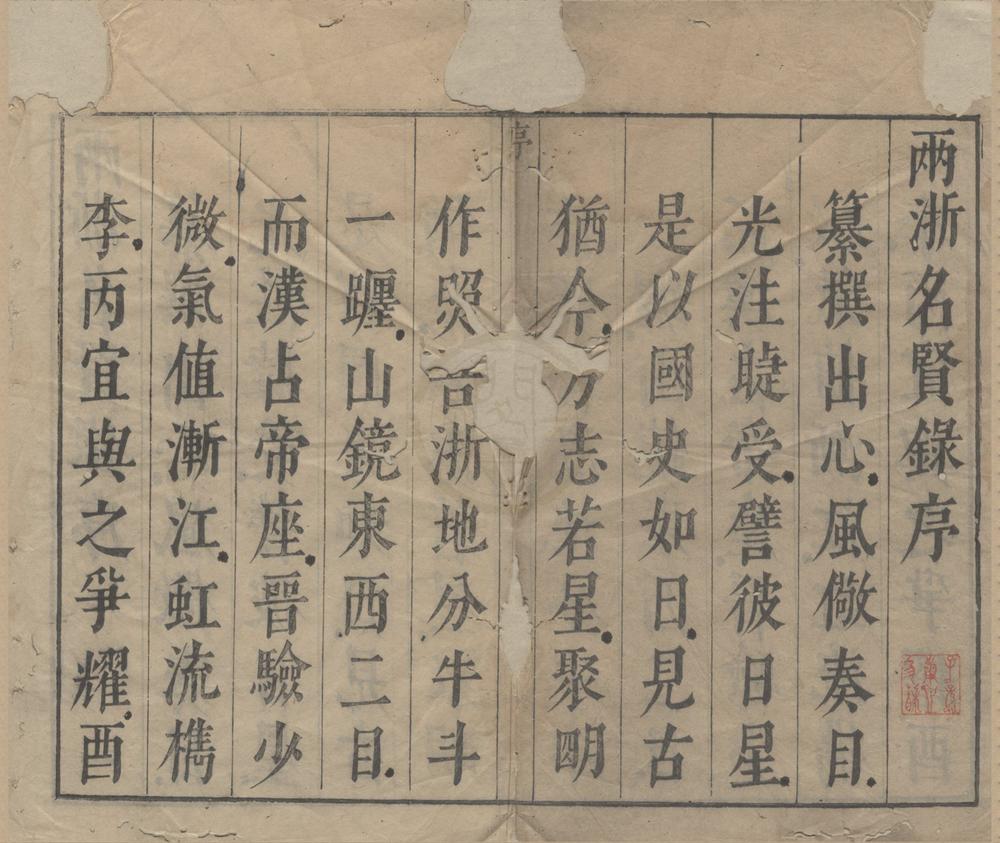 兩浙名賢錄序
纂撰出心風儆奏目
光注睫受譬彼日星
是以國史如日見古
猶今方志若星聚明
作照吾浙地分牛斗
一躔山鏡東西二目
而漢占帝座晉驗少
微氣值漸江虹流檇
李丙宜與之爭耀酉